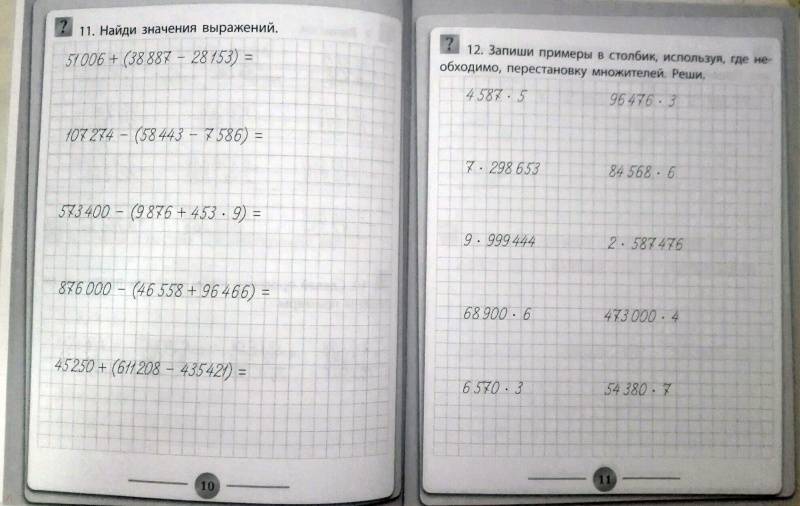 ? 11. Найди значения выражений.
51 006 + (38 887 − 28 153) =
107 274 − (58 443 − 7 586) =
573 400 − (9 876 + 453 · 9) =
876 000 − (46 558 + 96 466) =
45 250 + (611 208 − 435 421) =
10
? 12. Запиши примеры в столбик, используя, где не-
обходимо, перестановку множителей. Реши.
4 587 · 5 96 476 · 3
7 · 298 653 84 568 · 6
9 · 999 444 2 · 587 476
68 900 · 6 473 000 · 4
6 570 · 3 54 380 · 7
11